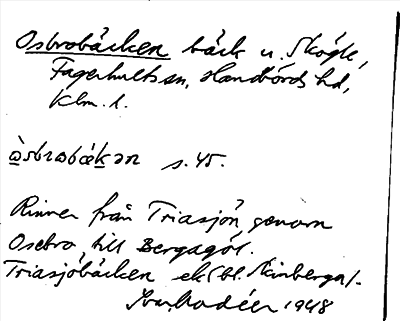 Osbrobäcken bäck u. Skögle,
Fagerhults sn, Handbörds hd,
Klm. l.
òsbrobäkən s. 45.
Rinner från Triasjön genom
Osebro till Bergagöl.
Triasjöbäcken ek(bl. Skinberga).
Ivar Modéer 1948